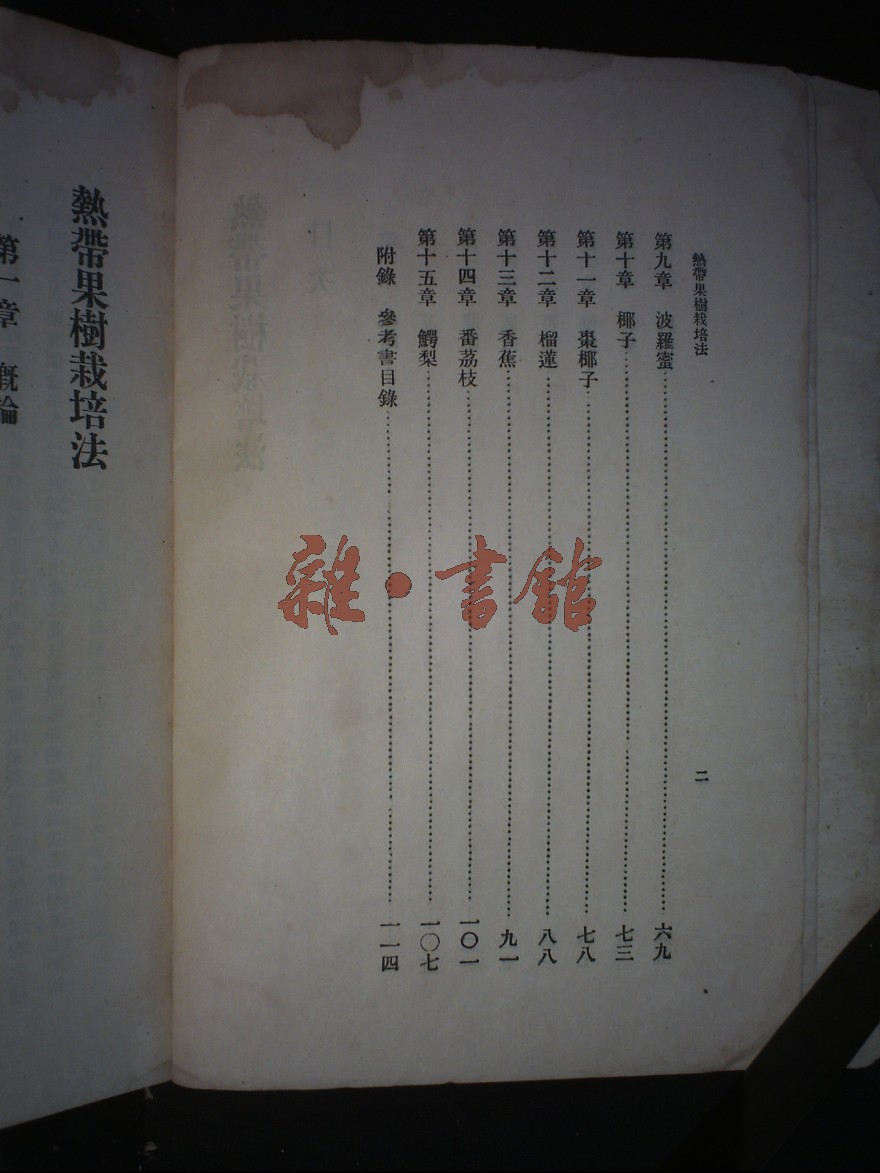 熱帶果樹栽培法
二
第九章 波羅蜜 六九
第十章 椰子 七三
第十一章 棗椰子 七八
第十二章 榴蓮 八八
第十三章 香蕉 九一
第十四章 番荔枝 一〇一
第十五章 鰐梨 一〇七
附錄 參考書目錄 一一四
熱帶果樹栽培法
第一章 概論
雜·書館